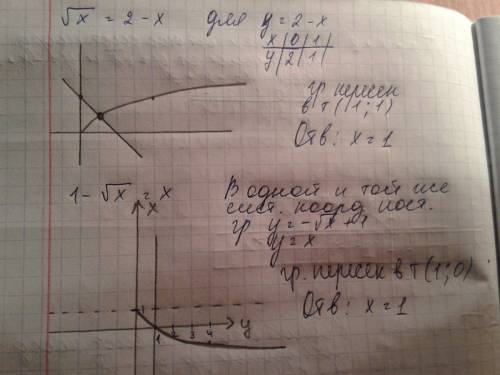 √x = 2 - x для y = 2 - x
x | 0 | 1 |
y | 2 | 1 |
гр пересек
в т (1; 1)
Отв: x = 1
1 - √x = x
В одной и той же
сист. коорд пост.
гр y = -√x + 1
y = x
гр. пересек в т (1; 0)
Отв: x = 1
x
y
1 2 3 4